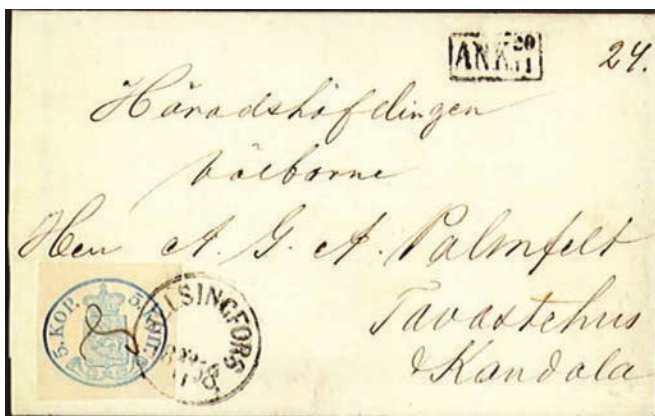 ANK. 20
11
24.
Häradshöfdingen
Välborne
Herr A. G. A. Palmfelt
Tavastehus
& Kandala
5. KOP. 5.
HELSINGFORS